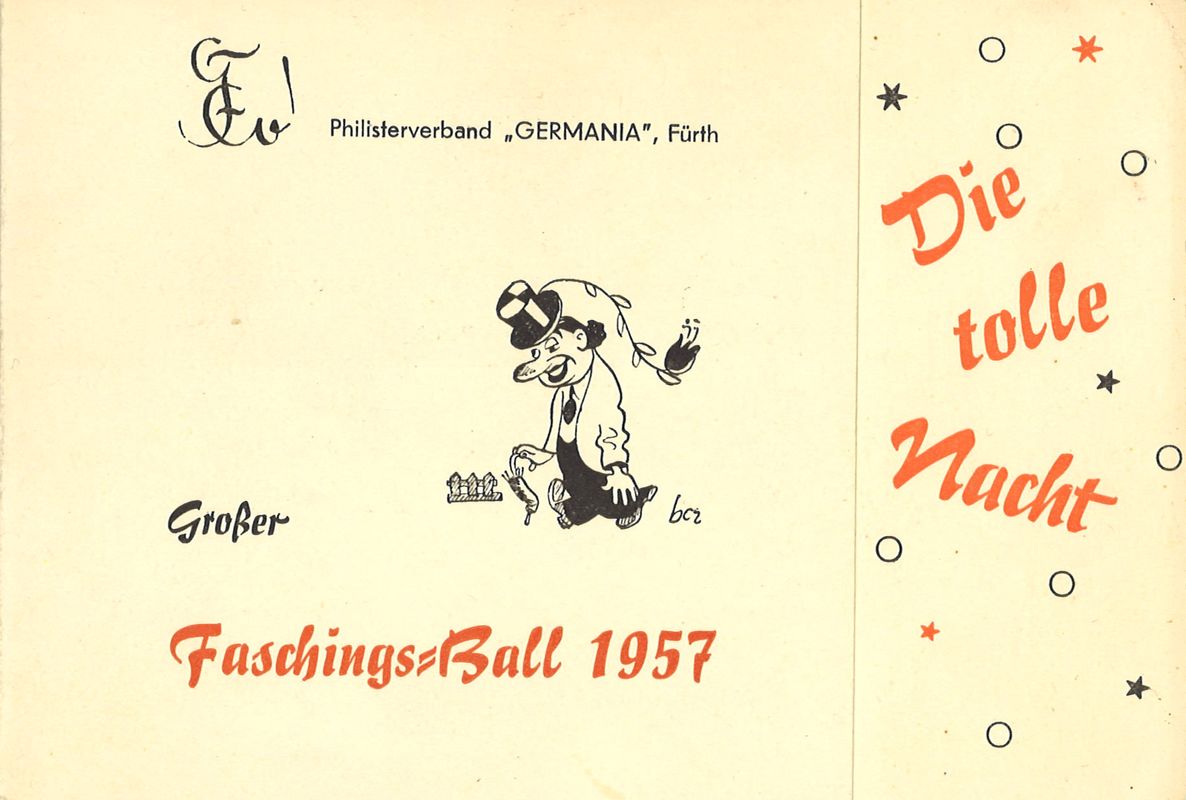 Philisterverband „GERMANIA”, Fürth
bcz
Großer
Faschings=Ball 1957
Die
tolle
Nacht